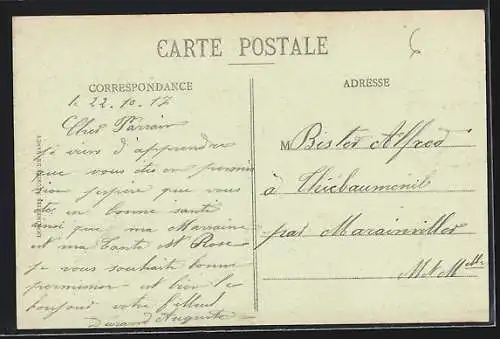 CARTE POSTALE
CORRESPONDANCE
1. 22.10.17
Cher Parrain
Je viens d'apprendre
que vous ete en permis
sion j'espere que vous
ete en bonne santé
ainsi que ma Marraine
et ma Tante et Rose
je vous souhait bonne
permission et bien le
bonjour votre filleul
Durand Auguste
ADRESSE
M Bister Alfred
à Thiébauménil
par Marainviller
M et Mlle